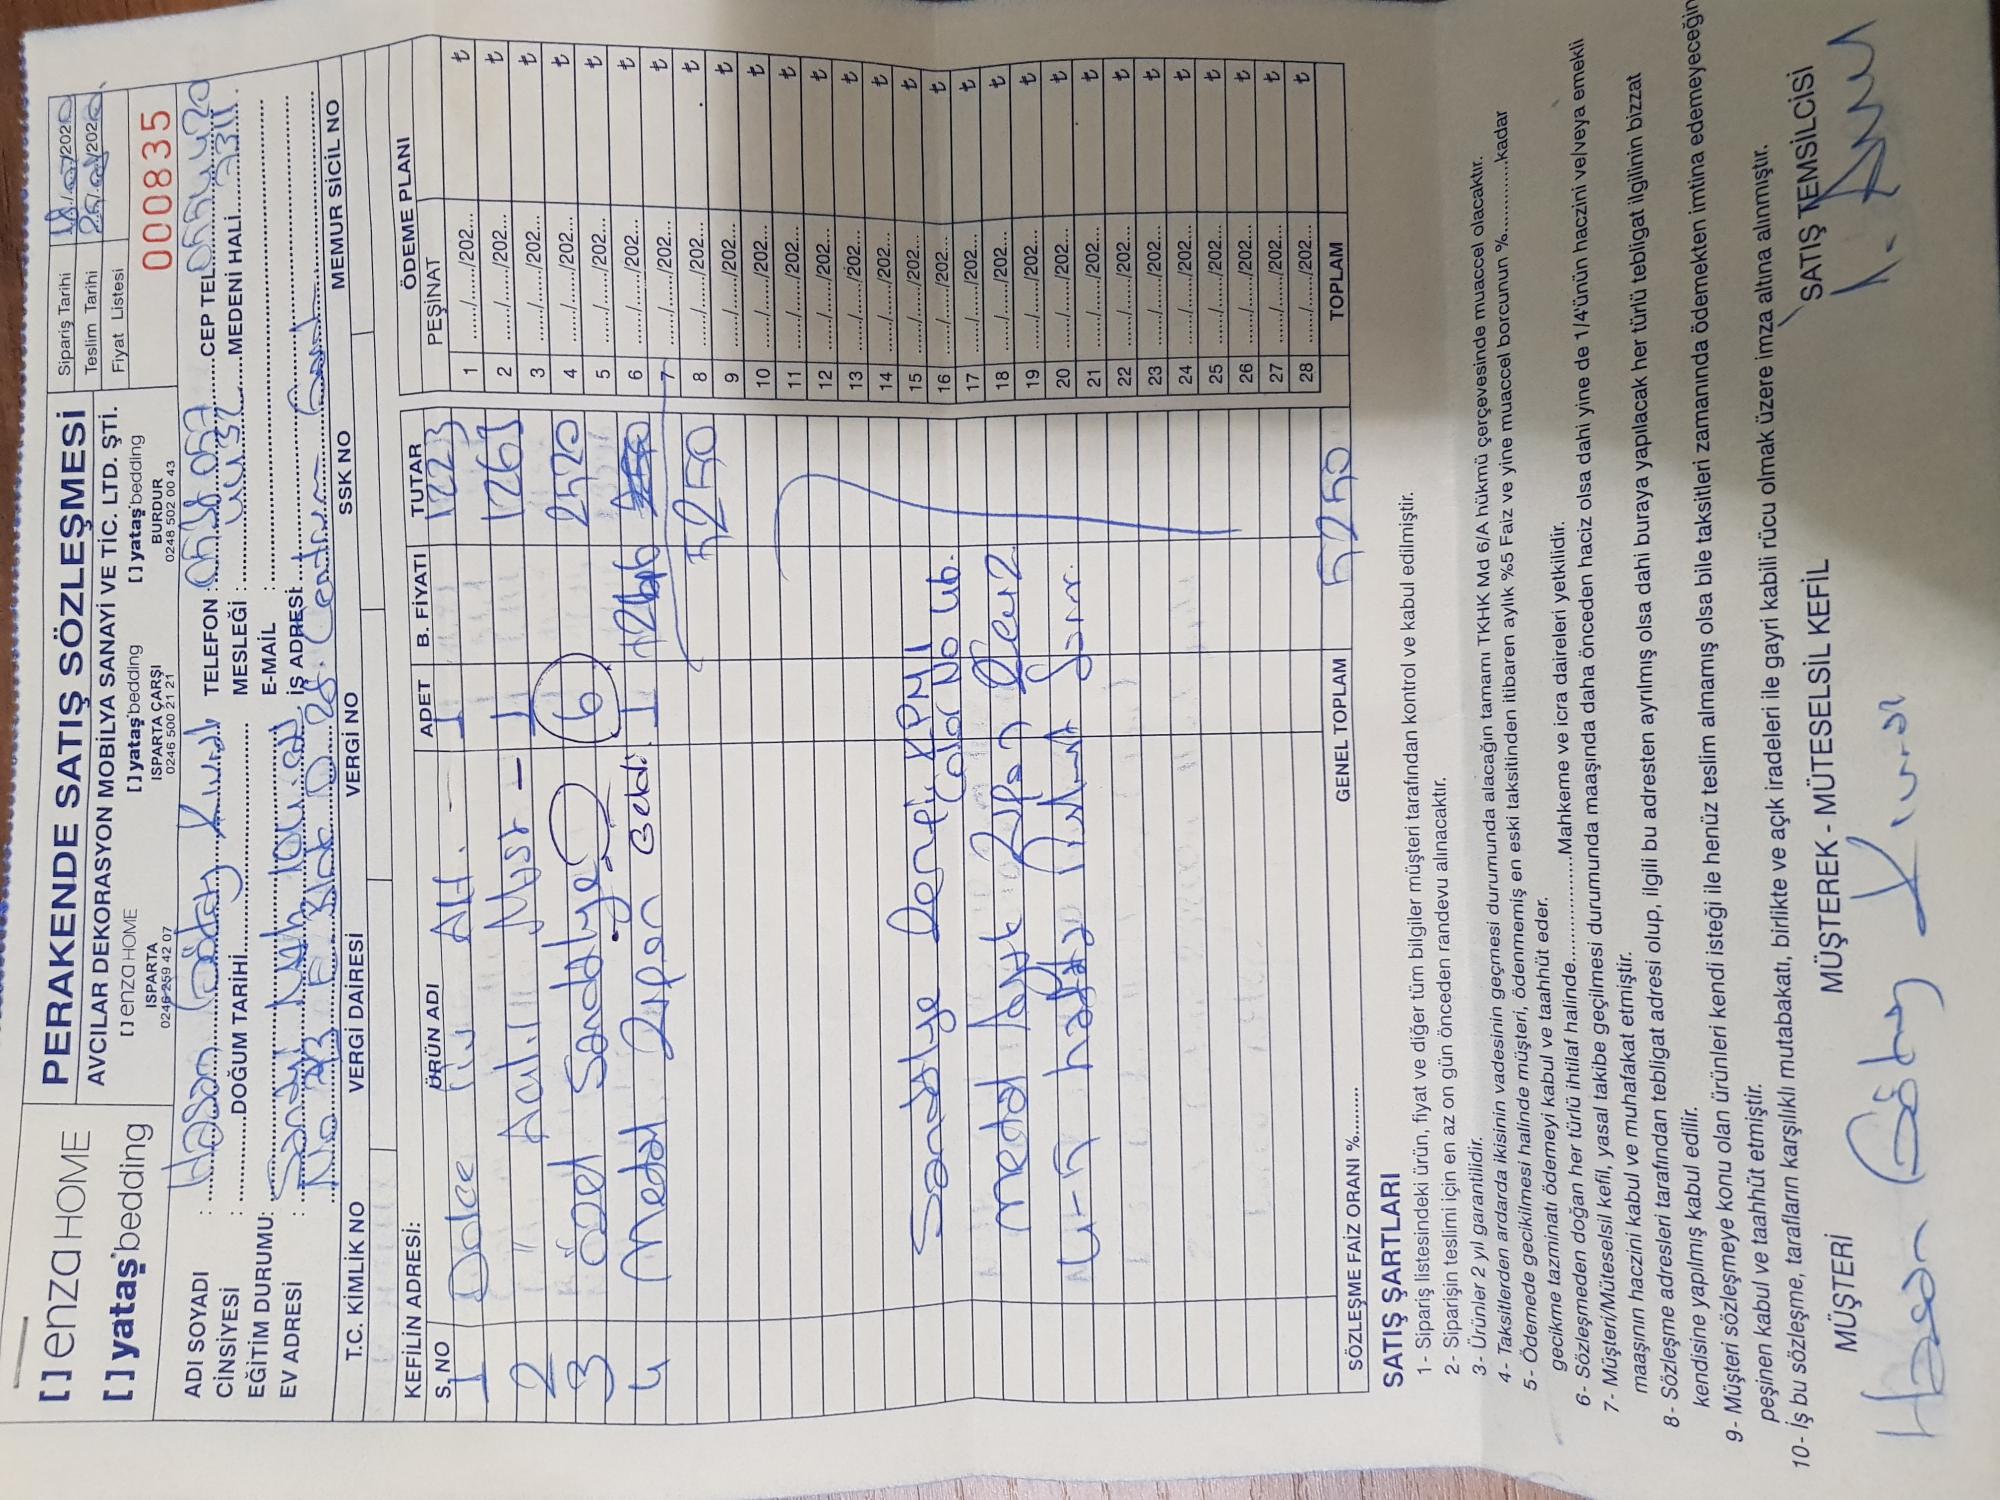 [ ] enzaHOME
[ ] yataş bedding
PERAKENDE SATIŞ SÖZLEŞMESİ
AVCILAR DEKORASYON MOBİLYA SANAYİ VE TİC. LTD. ŞTİ.
[ ] enzaHOME
ISPARTA
0246 259 42 07
[ ] yataş bedding
ISPARTA ÇARŞI
0246 500 21 21
[ ] yataş bedding
BURDUR
0248 502 00 43
Sipariş Tarihi 18/07/2020
Teslim Tarihi /2020
Fiyat Listesi
000835
ADI SOYADI : Hasan Göktuğ TELEFON : CEP TEL
CİNSİYESİ : DOĞUM TARİHİ MESLEĞİ : MEDENİ HALİ
EĞİTİM DURUMU: E-MAİL :
EV ADRESİ : İŞ ADRESİ
T.C. KİMLİK NO VERGİ DAİRESİ VERGİ NO SSK NO MEMUR SİCİL NO
KEFİLİN ADRESİ:
S. NO ÜRÜN ADI ADET B. FİYATI TUTAR
1 Dolce Alt. 1 1223
2 " " 1 1261
3 Özel Sandalye 6 2520
4 Metal Geldi. 1
5250
Sandalye
Color No
Metal Ayak
4-5 hafta
GENEL TOPLAM 5250
SÖZLEŞME FAİZ ORANI %..........
ÖDEME PLANI
PEŞİNAT ₺
1 ....../....../202... ₺
2 ....../....../202... ₺
3 ....../....../202... ₺
4 ....../....../202... ₺
5 ....../....../202... ₺
6 ....../....../202... ₺
7 ....../....../202... ₺
8 ....../....../202... ₺
9 ....../....../202... ₺
10 ....../....../202... ₺
11 ....../....../202... ₺
12 ....../....../202... ₺
13 ....../....../202... ₺
14 ....../....../202... ₺
15 ....../....../202... ₺
16 ....../....../202... ₺
17 ....../....../202... ₺
18 ....../....../202... ₺
19 ....../....../202... ₺
20 ....../....../202... ₺
21 ....../....../202... ₺
22 ....../....../202... ₺
23 ....../....../202... ₺
24 ....../....../202... ₺
25 ....../....../202... ₺
26 ....../....../202... ₺
27 ....../....../202... ₺
28 ....../....../202... ₺
TOPLAM
SATIŞ ŞARTLARI
1- Sipariş listesindeki ürün, fiyat ve diğer tüm bilgiler müşteri tarafından kontrol ve kabul edilmiştir.
2- Siparişin teslimi için en az on gün önceden randevu alınacaktır.
3- Ürünler 2 yıl garantilidir.
4- Taksitlerden ardarda ikisinin vadesinin geçmesi durumunda alacağın tamamı TKHK Md 6/A hükmü çerçevesinde muaccel olacaktır.
5- Ödemede gecikilmesi halinde müşteri, ödenmemiş en eski taksitinden itibaren aylık %5 Faiz ve yine muaccel borcunun %............kadar
gecikme tazminatı ödemeyi kabul ve taahhüt eder.
6- Sözleşmeden doğan her türlü ihtilaf halinde................Mahkeme ve icra daireleri yetkilidir.
7- Müşteri/Müteselsil kefil, yasal takibe geçilmesi durumunda maaşında daha önceden haciz olsa dahi yine de 1/4'ünün haczini ve/veya emekli
maaşının haczini kabul ve muhafakat etmiştir.
8- Sözleşme adresleri tarafından tebligat adresi olup, ilgili bu adresten ayrılmış olsa dahi buraya yapılacak her türlü tebligat ilgilinin bizzat
kendisine yapılmış kabul edilir.
9- Müşteri sözleşmeye konu olan ürünleri kendi isteği ile henüz teslim almamış olsa bile taksitleri zamanında ödemekten imtina edemeyeceğin
peşinen kabul ve taahhüt etmiştir.
10- İş bu sözleşme, tarafların karşılıklı mutabakatı, birlikte ve açık iradeleri ile gayri kabili rücu olmak üzere imza altına alınmıştır.
MÜŞTERİ MÜŞTEREK - MÜTESELSİL KEFİL SATIŞ TEMSİLCİSİ
Hasan Göktuğ